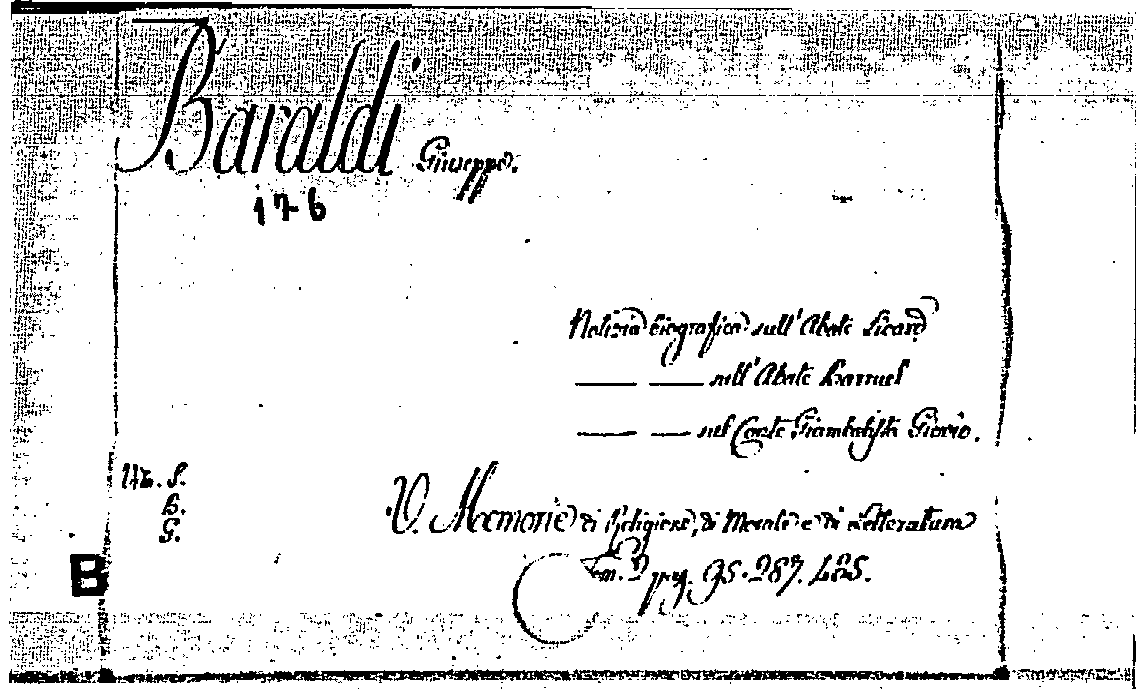 Baraldi Giuseppe.
176
Notizia biografica sull'Abate Sicard
— — sull'Abate Barruel
— — sul Conte Giambatista Giovio.
S.
B.
G.
V. Memorie di Religione, di Morale e di Letteratura
Tom. 2 pag. 95. 287. 425.
B